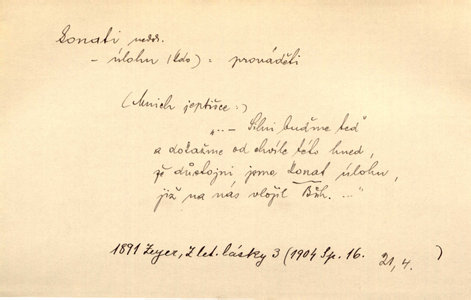 konati nedok.
– úlohu (kdo) = prováděti
(Mnich jeptišce:)
„.– Silni buďme teď
a dokažme od chvíle této hned,
že důstojni jsme konat úlohu,
již na nás vložil Bůh. –"
1891 Zeyer, Z let. lásky 3 (1904 Sp. 16. 21, 4. )